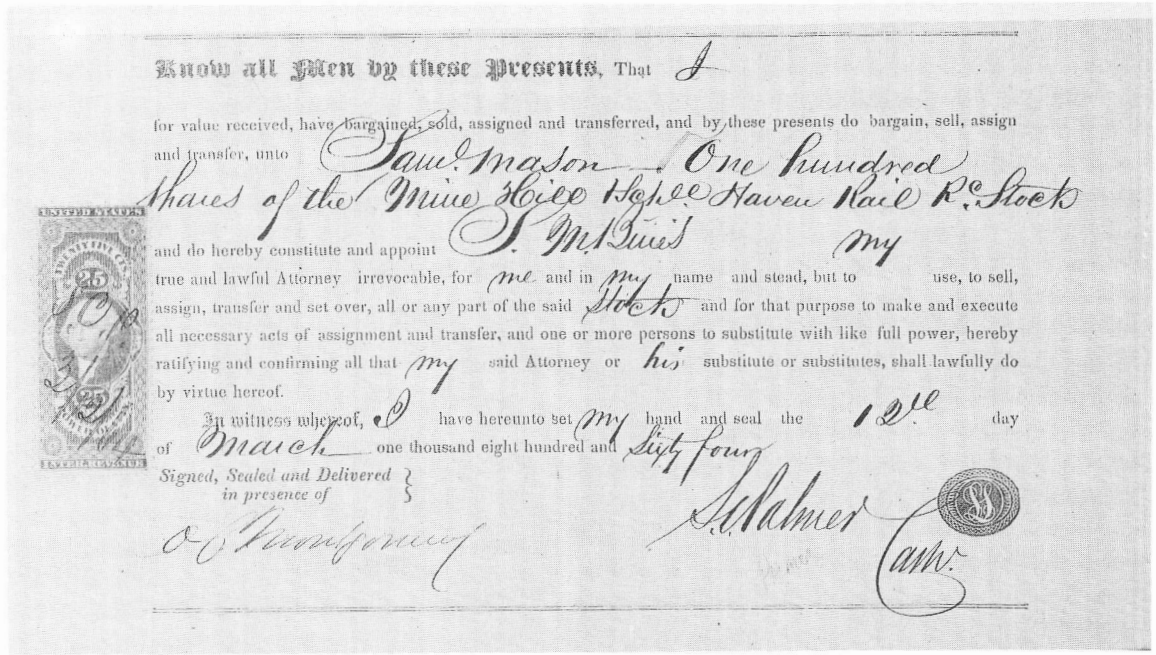 Know all Men by these Presents, That I
for value received, have bargained, sold, assigned and transferred, and by these presents do bargain, sell, assign
and transfer, unto Saml. Mason One hundred
shares of the Mine Hill & Schll Haven Rail Rd. Stock
and do hereby constitute and appoint my
true and lawful Attorney irrevocable, for me and in my name and stead, but to use, to sell,
assign, transfer and set over, all or any part of the said Stock and for that purpose to make and execute
all necessary acts of assignment and transfer, and one or more persons to substitute with like full power, hereby
ratifying and confirming all that my said Attorney or his substitute or substitutes, shall lawfully do
by virtue hereof.
In witness whereof, I have hereunto set my hand and seal the 12th day
of March one thousand eight hundred and Sixty four
Signed, Sealed and Delivered }
in presence of
Montgomery
S. C. Palmer
Cashr.
UNITED STATES
TWENTY FIVE CTS.
25
25
INTER. REVENUE